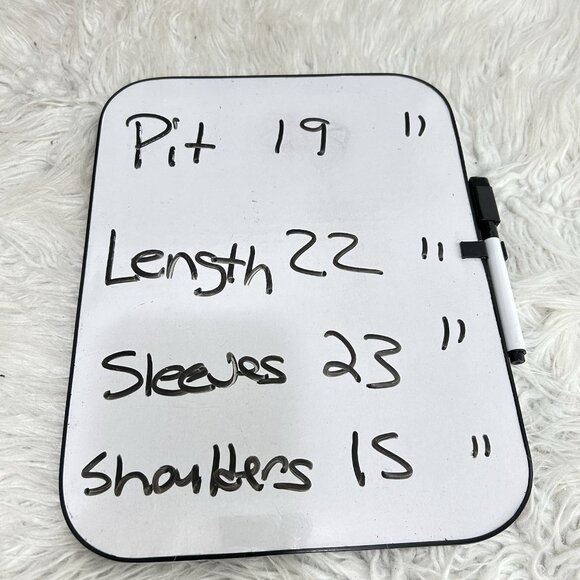 Pit 19 "
Length 22 "
Sleeves 23 "
Shoulders 15 "